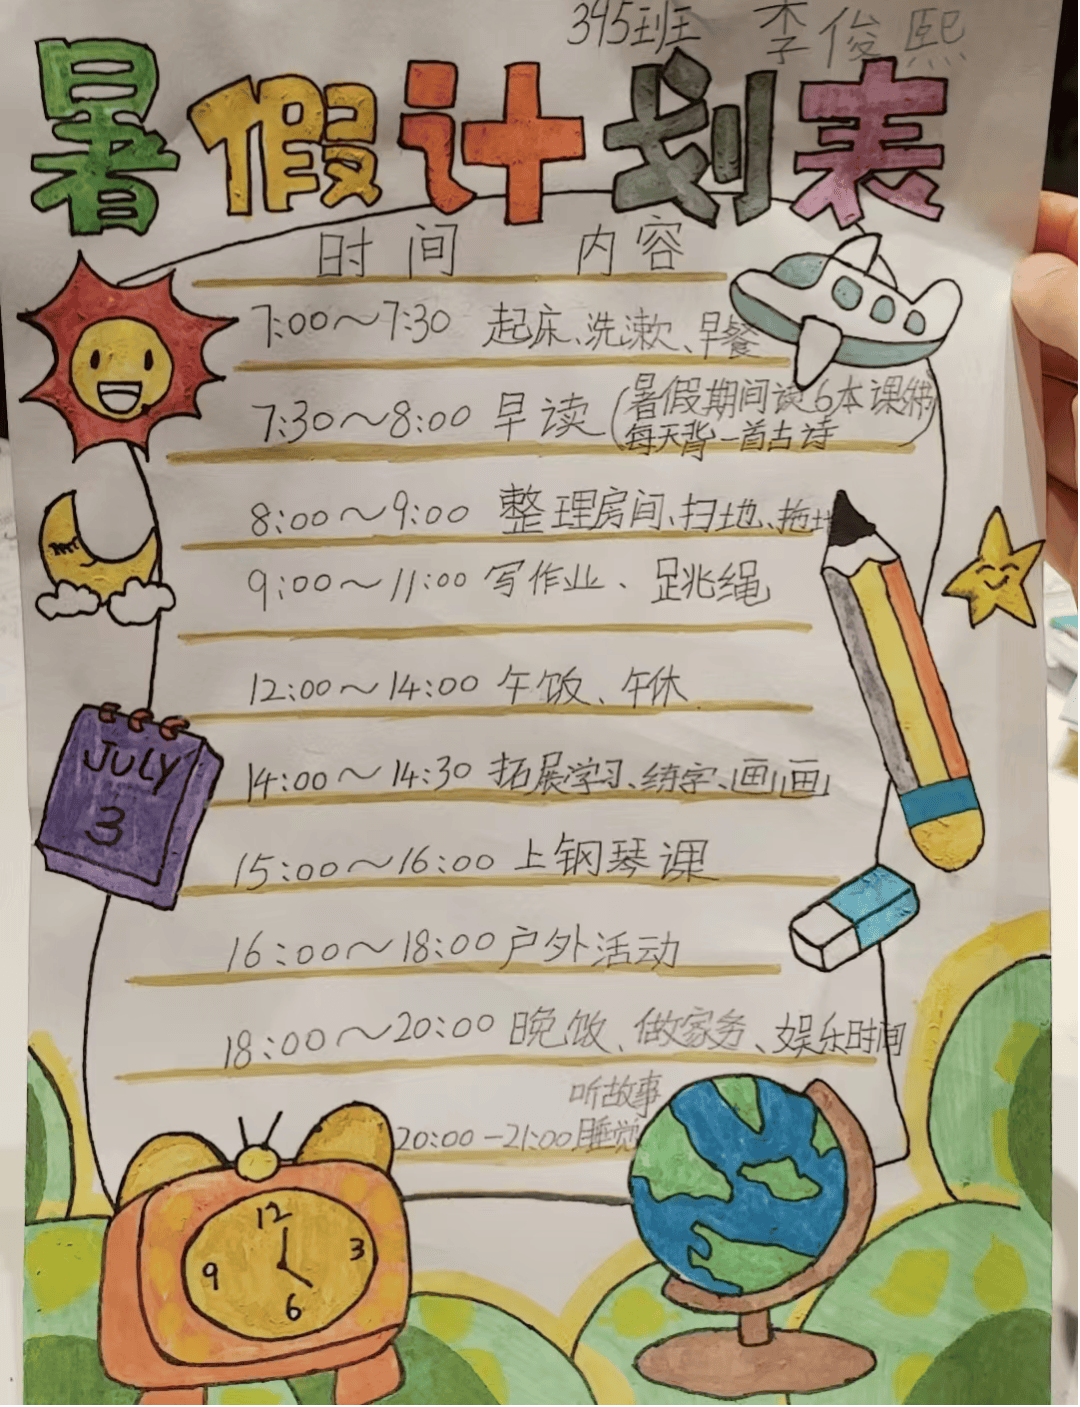 395班 李俊熙
暑假计划表
时间 内容
7:00～7:30 起床、洗漱、早餐
7:30～8:00 早读(暑假期间读6本课外
每天背一首古诗)
8:00～9:00 整理房间、扫地、拖地
9:00～11:00 写作业、跳绳
12:00～14:00 午饭、午休
JULY
3
14:00～14:30 拓展学习、练字、画画
15:00～16:00 上钢琴课
16:00～18:00 户外活动
18:00～20:00 晚饭、做家务、娱乐时间
听故事
20:00-21:00 睡觉
12
9 3
6